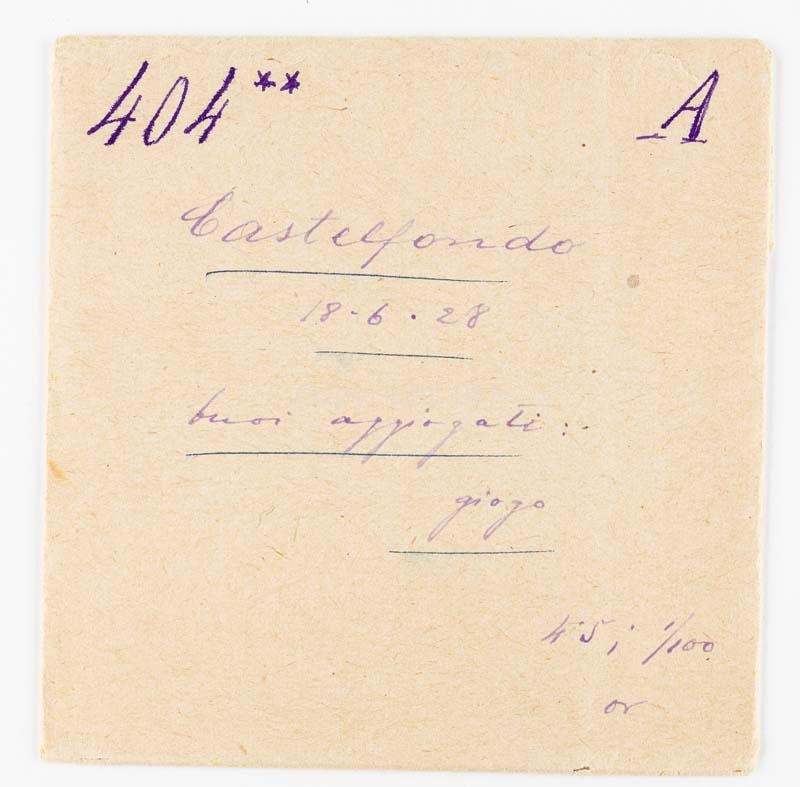 404** A
Castelfondo
18-6.28
buoi aggiogati:
giogo
4.5; 1/100
or